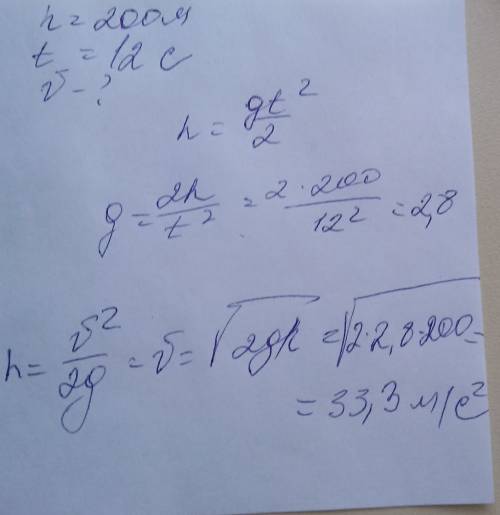 h = 200м
t = 12 с
v - ?
h = gt²/2
g = 2h/t² = 2·200/12² = 2,8
h = v²/2g = v = √2gh = √2·2,8·200 =
= 33,3 м/с²